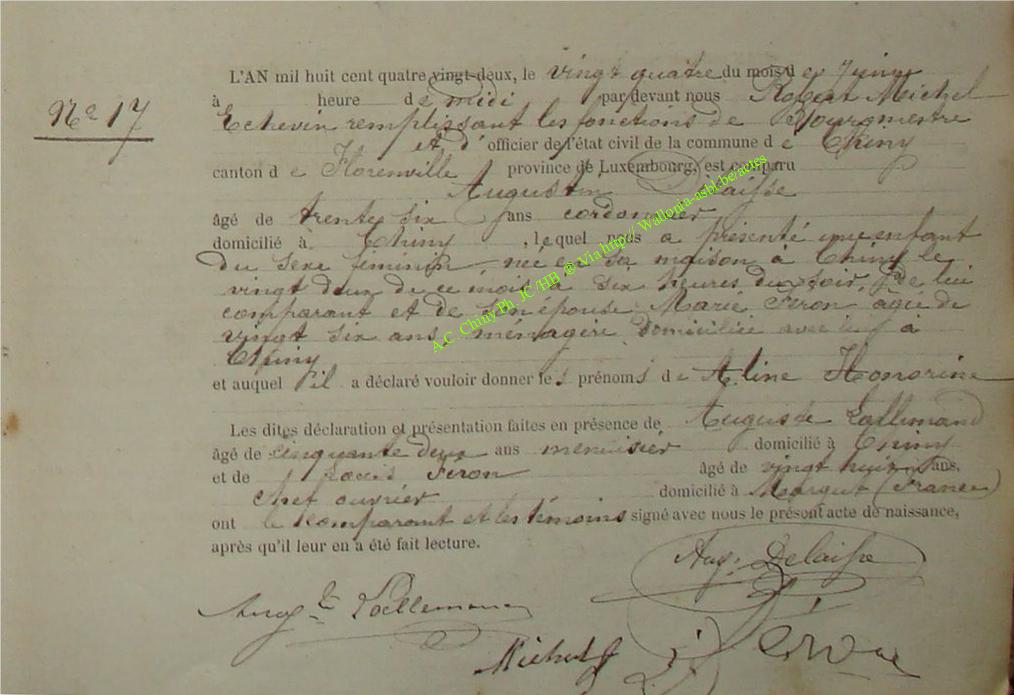 Nº 17
L'AN mil huit cent quatre vingt-deux, le vingt quatre du mois d e Juin
à heure de midi par devant nous Robert Michel
Echevin remplissant les fonctions de Bourgmestre
et d' officier de l'état civil de la commune d e Chiny
canton d e Florenville province de Luxembourg, est comparu
Augustin Delaisse
âgé de trente six ans cordonnier
domicilié à Chiny , lequel nous a présenté une enfant
du sexe féminin née en sa maison à Chiny le
vingt deux de ce mois à six heures du soir, de lui
comparant et de son épouse Marie Firon âgée de
vingt six ans ménagère domiciliée avec lui à
Chiny
et auquel il a déclaré vouloir donner les prénoms de Aline Honorine
Les dites déclaration et présentation faites en présence de Auguste Lallemand
âgé de cinquante deux ans menuisier domicilié à Chiny
et de Firon âgé de vingt huit ans,
chef ouvrier domicilié à Margut (France)
ont le comparant et les témoins signé avec nous le présent acte de naissance,
après qu'il leur en a été fait lecture.
Aug. Delaisse
Aug.te Lallemand
Michel
A.C. Chiny Ph. JC /HB @ Via http:// Wallonia-asbl.be/actes